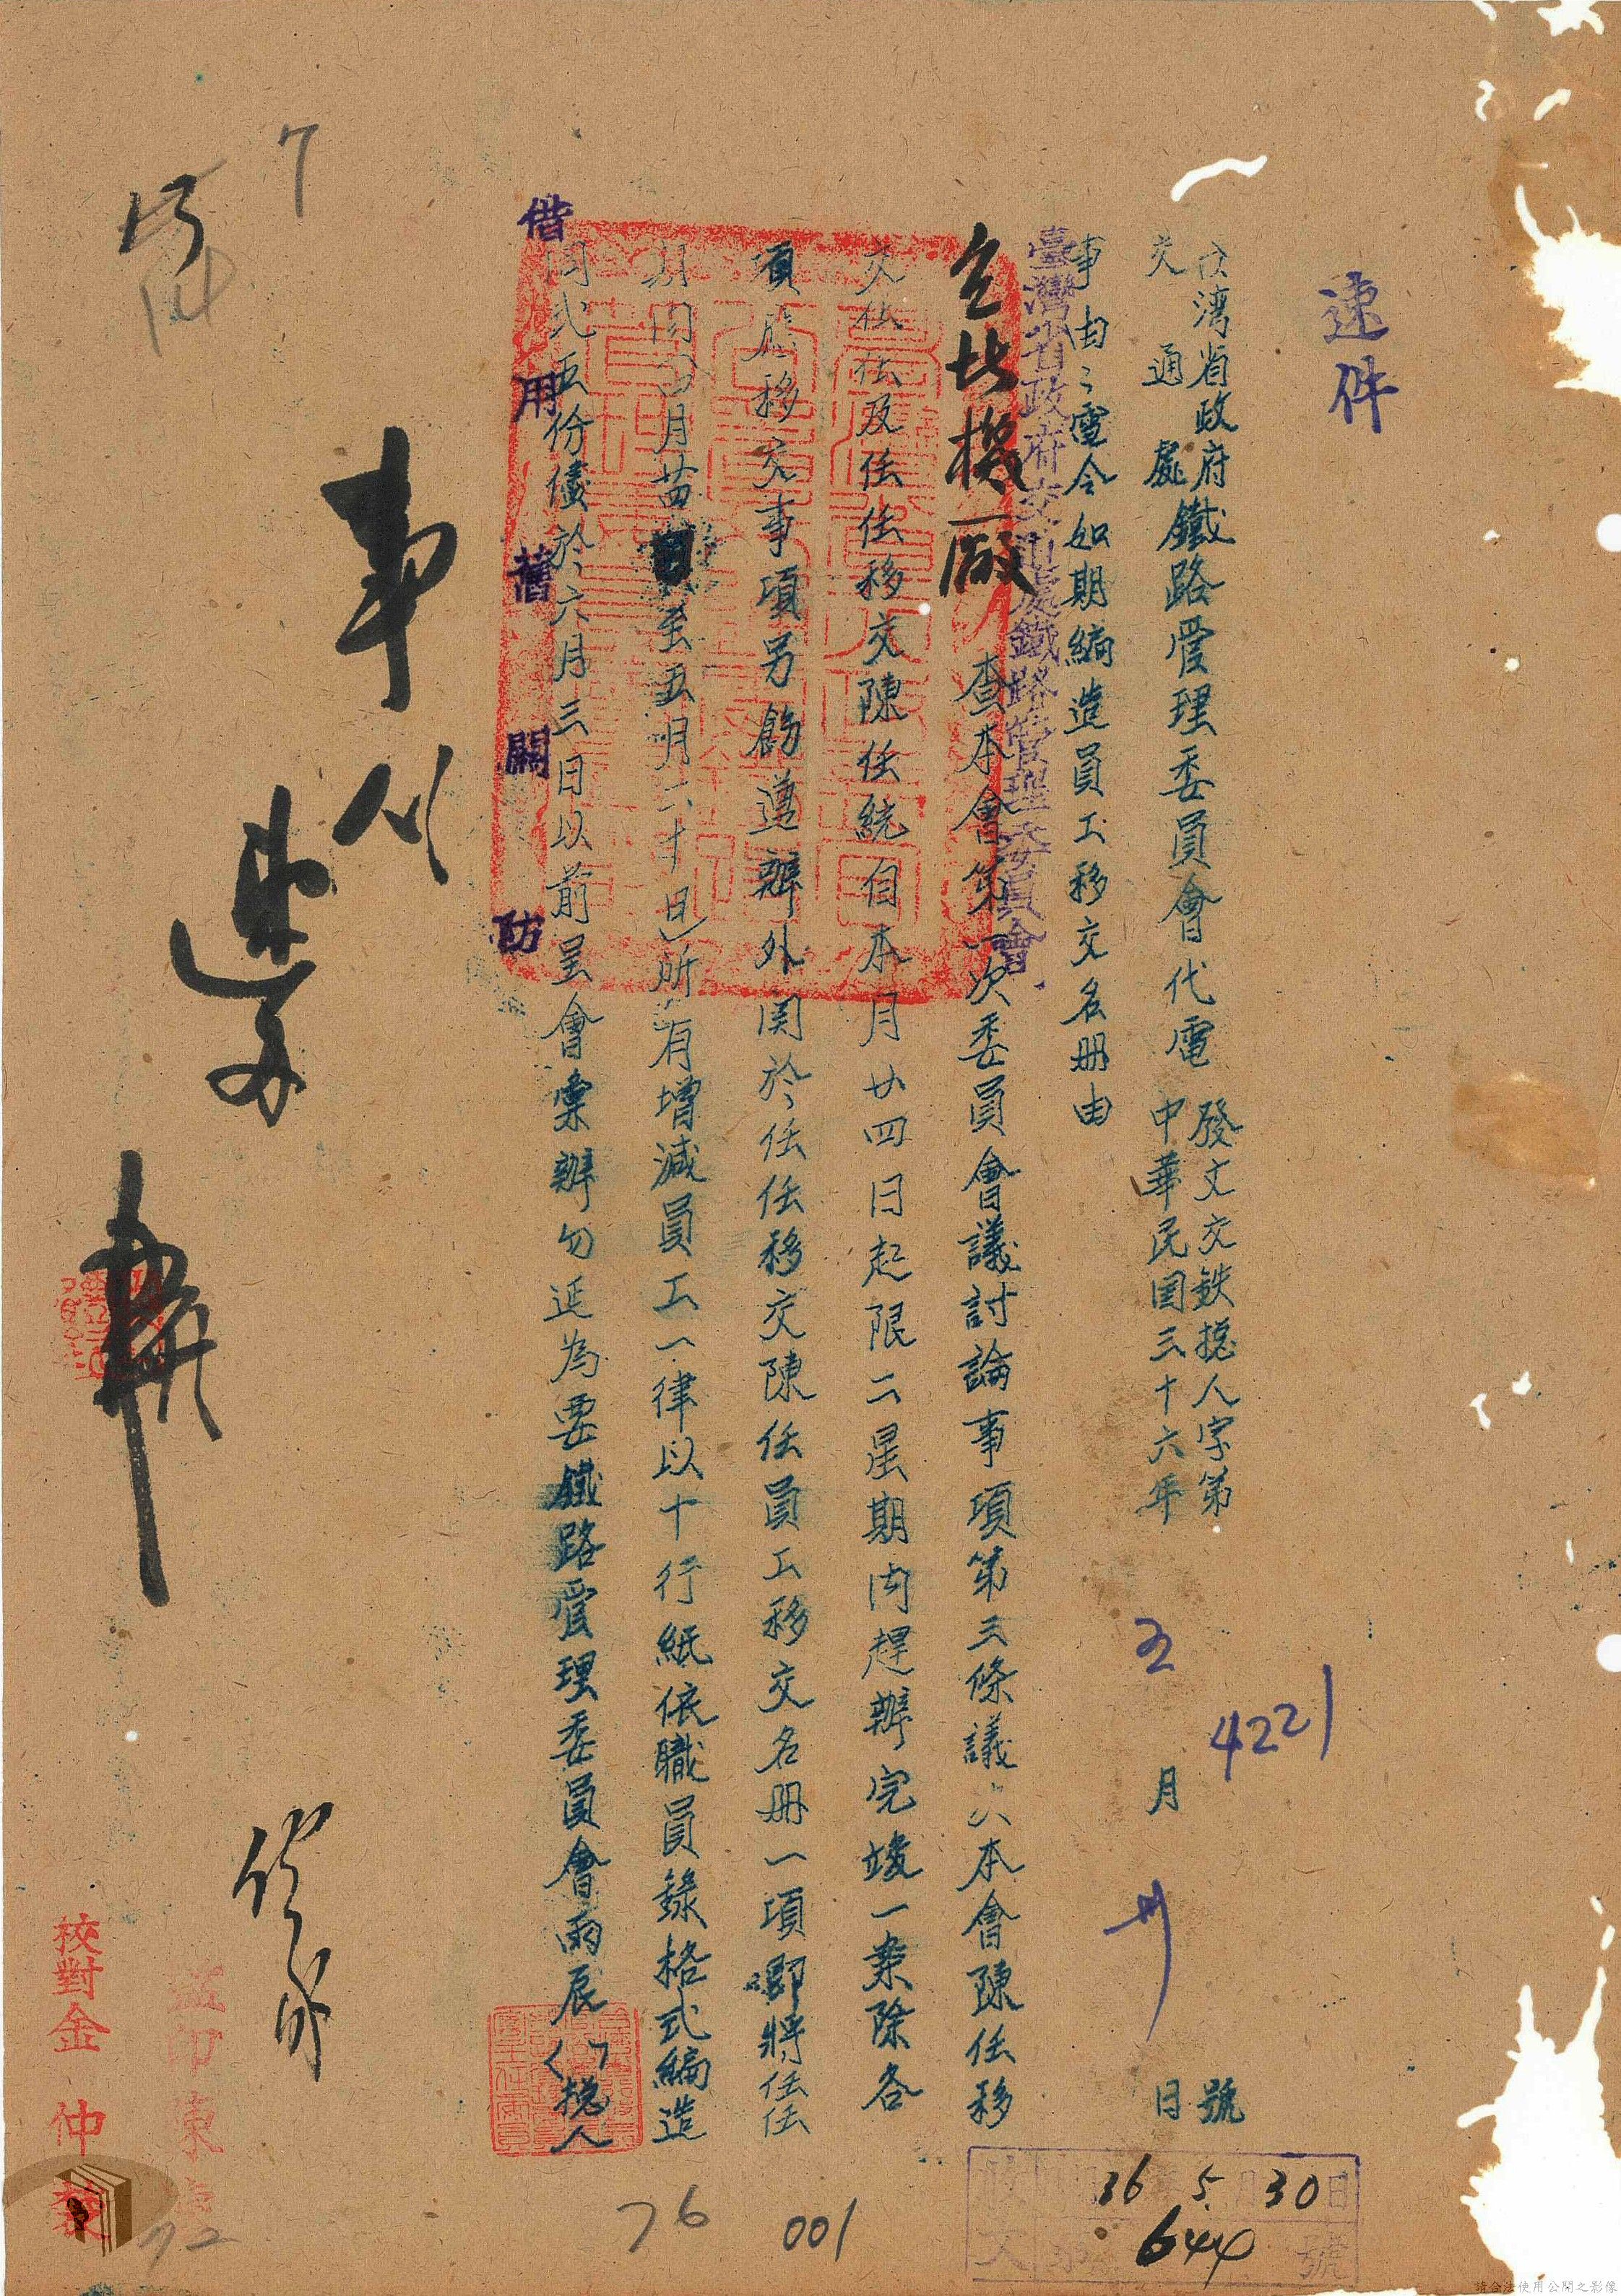 速件
台湾省政府
交通處
鐵路管理委員會代電
發文交鉄捴人字第4221號
中華民囯三十六年五月卅日
事由：電令如期編造員工移交名册由
臺灣省政府交通處鐵路管理委員會
台北機廠
查本會第一次委員會議討論事項第三條議決本會陳任移
交伍任及伍任移交陳任統自本月廿四日起限二星期內趕辦完竣一案除各
項應移交事項另飭遵辦外関於伍任移交陳任員工移交名册一項即將伍任
期間至五月二十日所有增減員工一律以十行紙依職員錄格式編造
同式五份儘於六月三日以前呈會彙辦勿延為要鐵路管理委員會兩辰捴人
借用舊關防
7
事以
速
校對金仲
監印陳
收文
36 5月30日
644號
76
001
72
請合法使用公開之影像